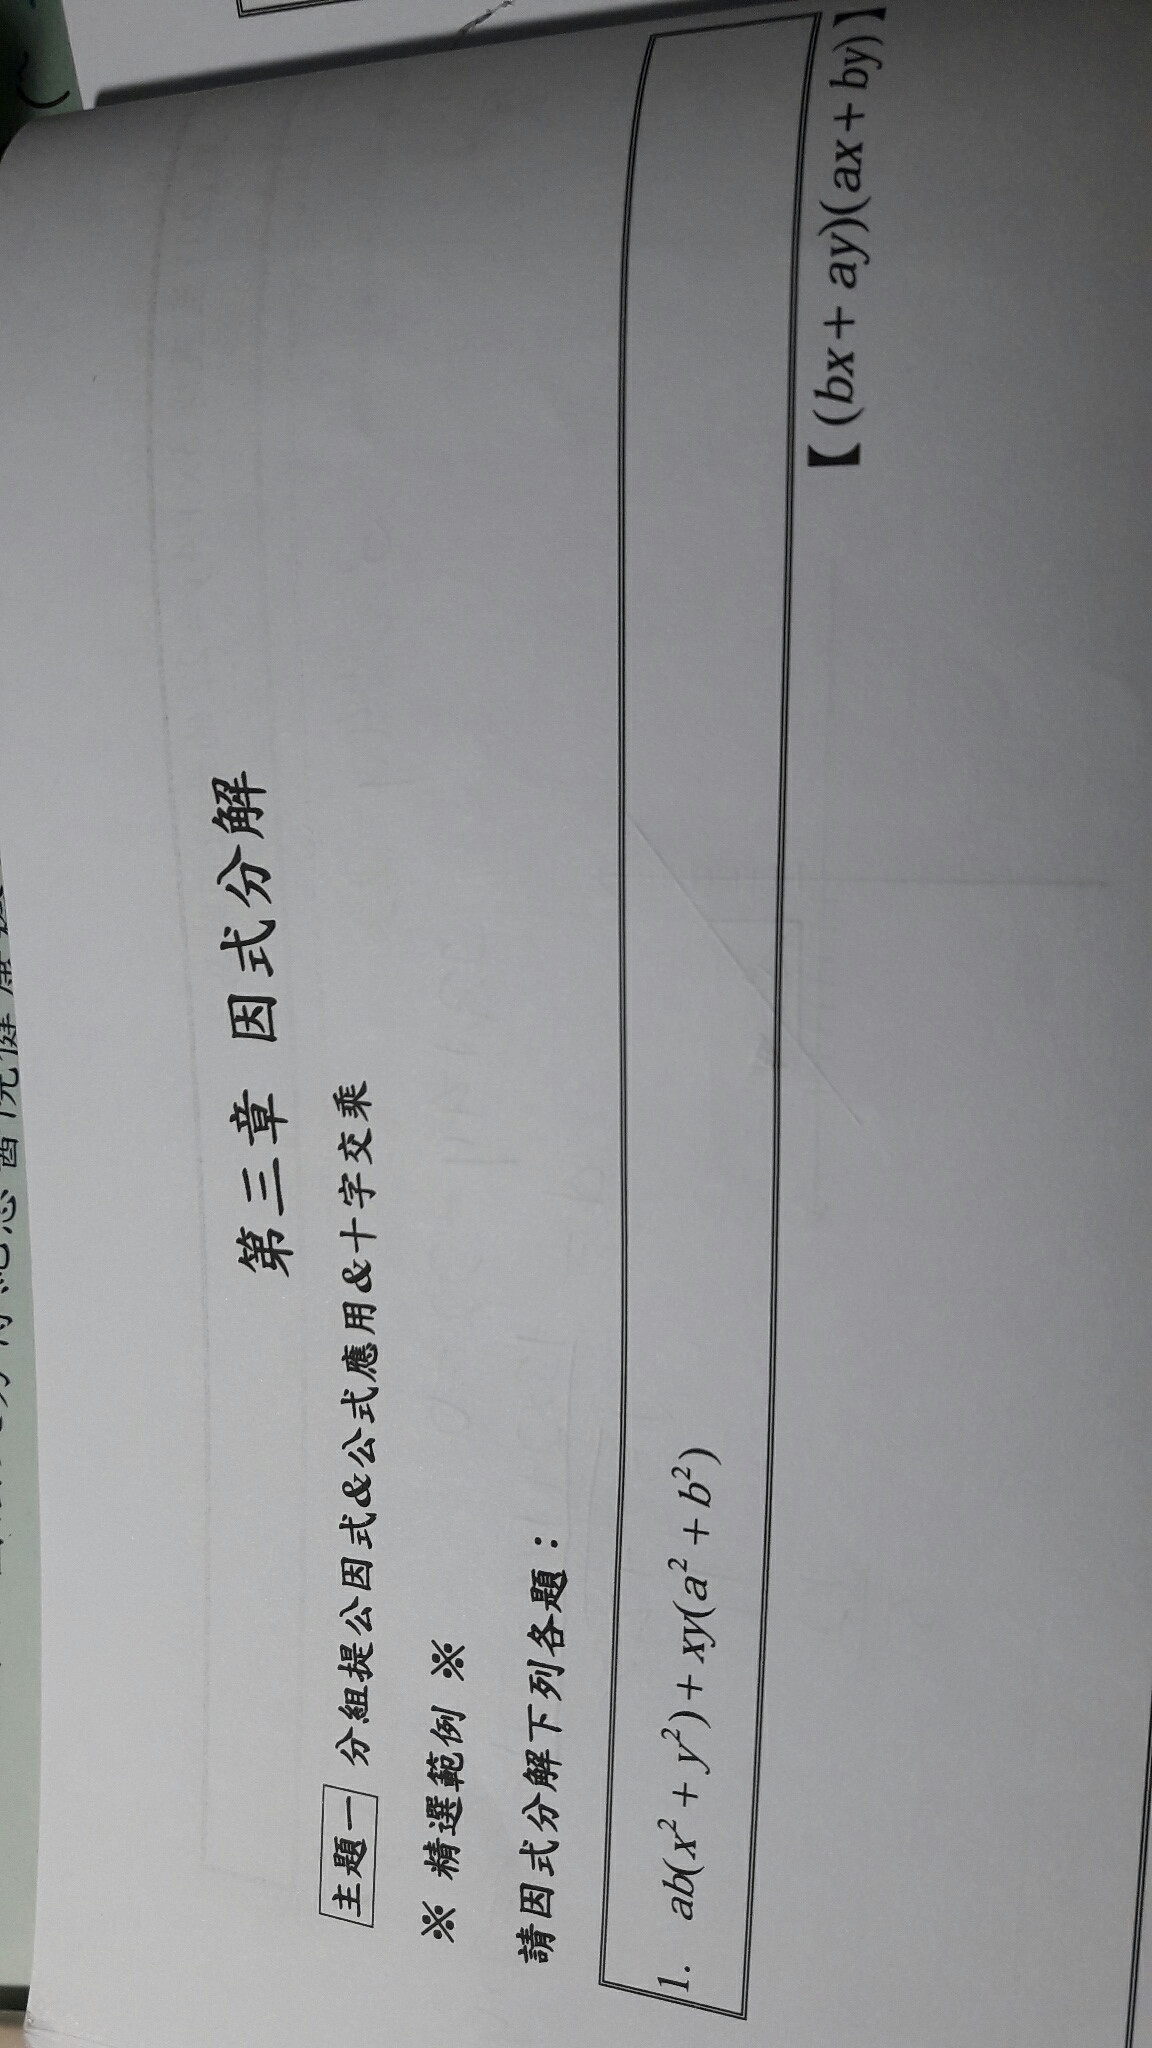 第三章 因式分解
主題一 分組提公因式&公式應用&十字交乘
※ 精選範例 ※
請因式分解下列各題：
1. ab(x² + y²) + xy(a² + b²)
【(bx + ay)(ax + by)】